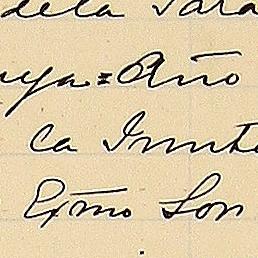 dela Para
uya = Año
la Inmta
Extmo Son